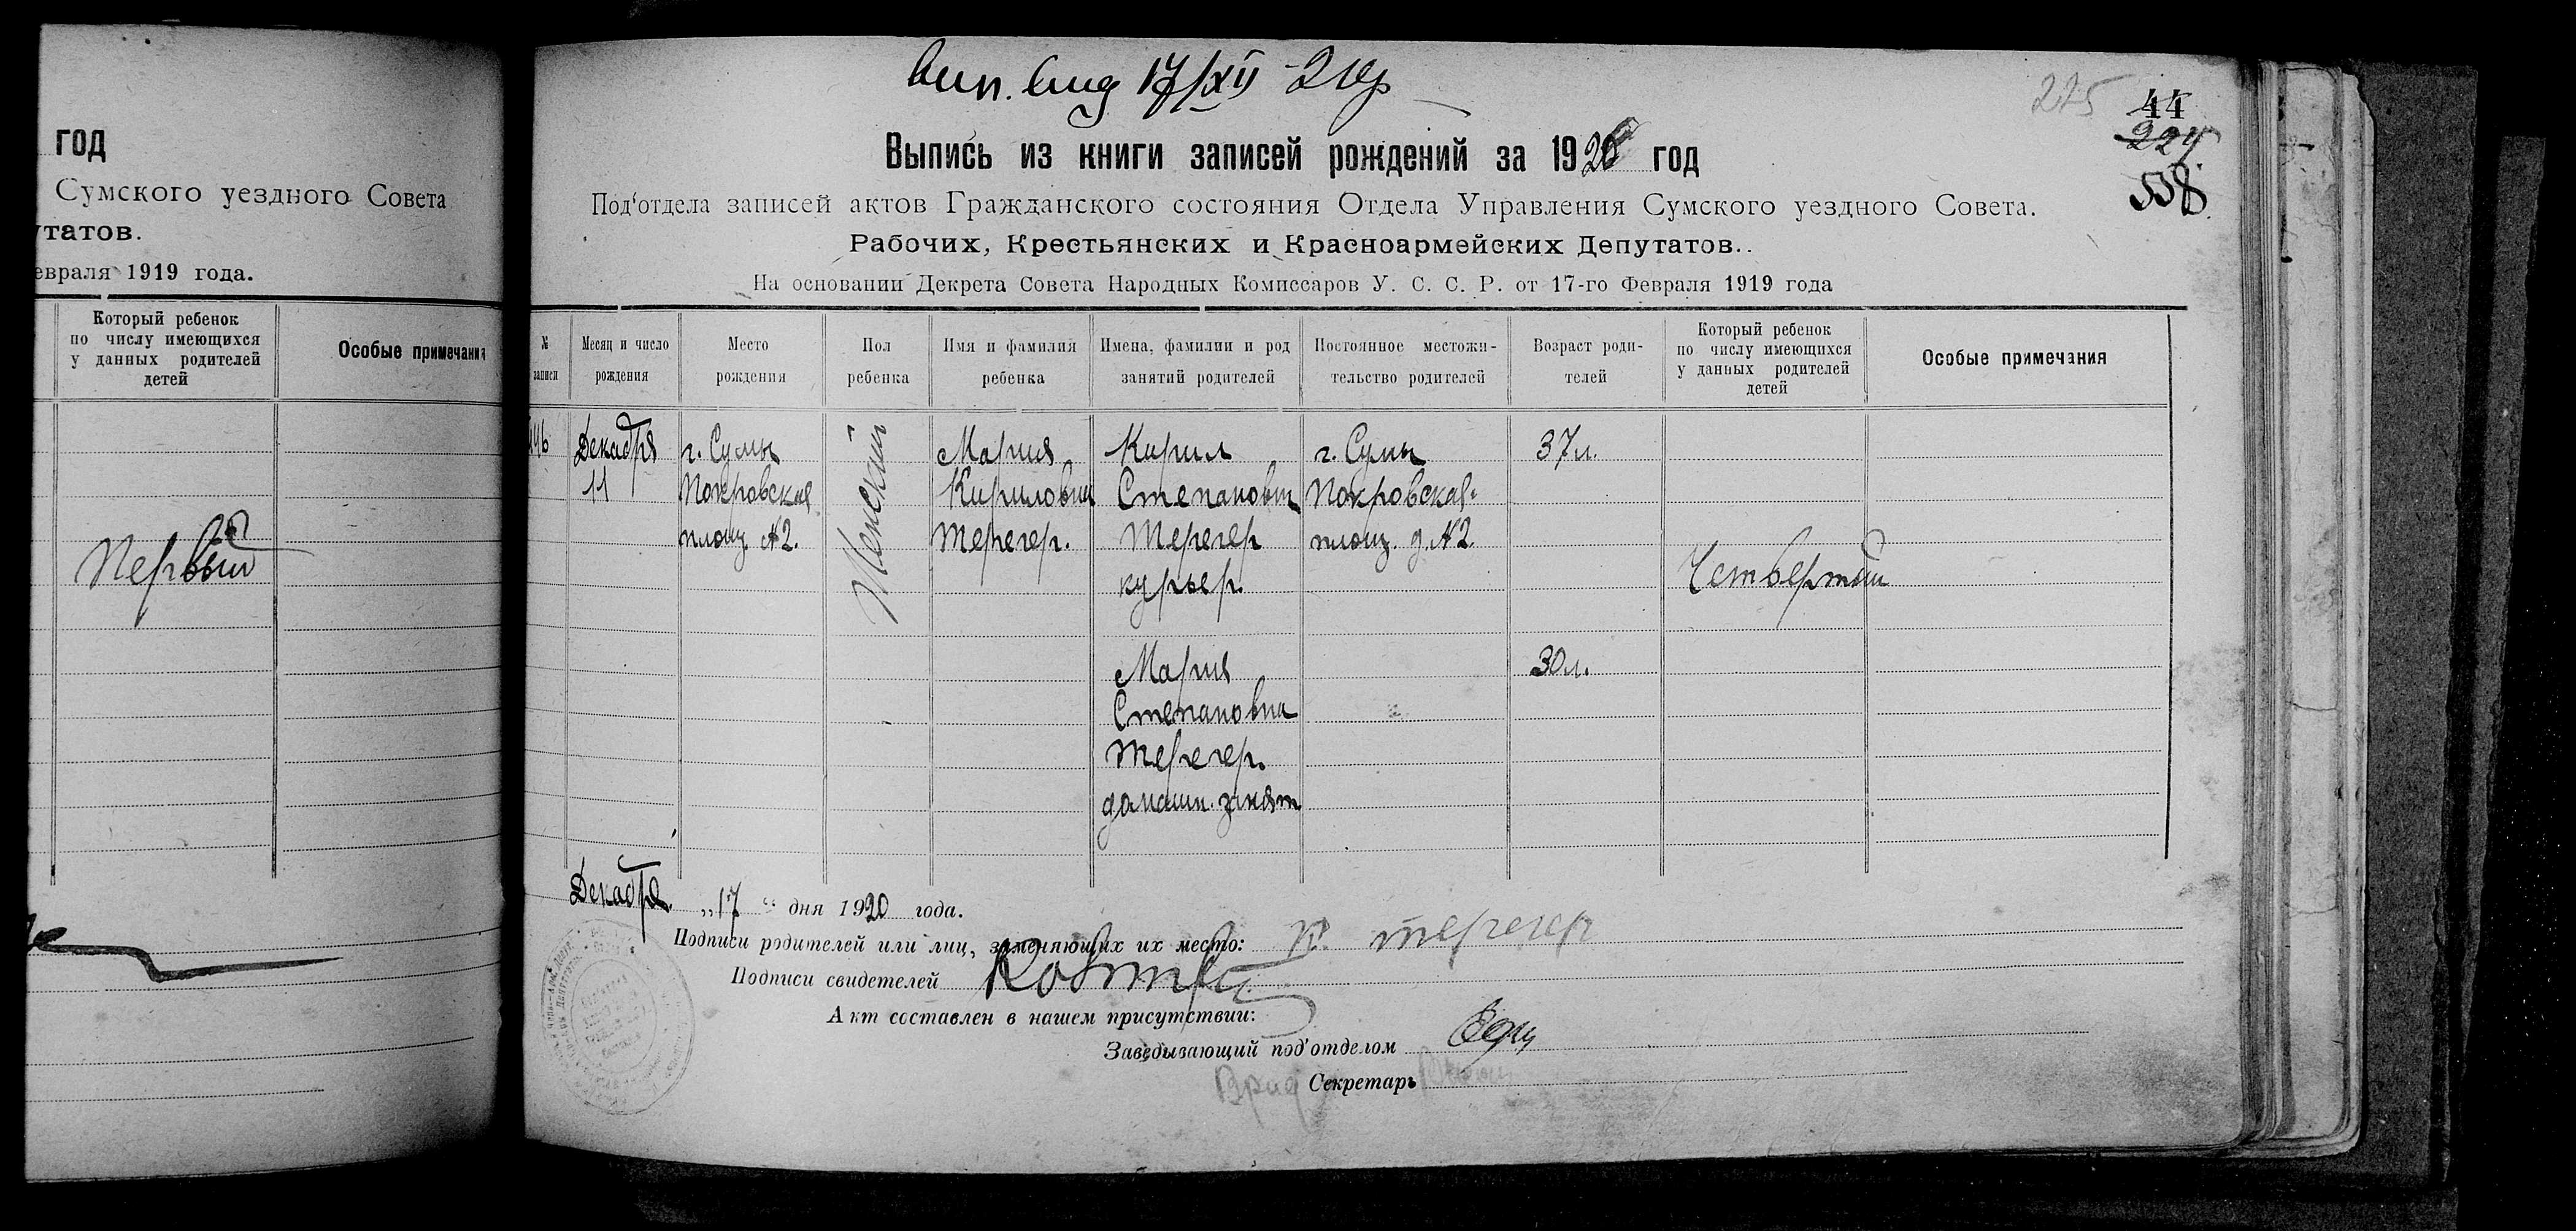 год
Сумского уездного Совета
утатов.
евраля 1919 года.
Который ребенок
по числу имеющихся
у данных родителей
детей
Особые примечания
Первый
17/XII
225
44
224
558
Выпись из книги записей рождений за 1920 год
Под'отдела записей актов Гражданского состояния Отдела Управления Сумского уездного Совета.
Рабочих, Крестьянских и Красноармейских Депутатов..
На основании Декрета Совета Народных Комиссаров У. С. С. Р. от 17-го Февраля 1919 года
№
записи
Месяц и число
рождения
Место
рождения
Пол
ребенка
Имя и фамилия
ребенка
Имена, фамилии и род
занятий родителей
Постоянное местожи-
тельство родителей
Возраст роди-
телей
Который ребенок
по числу имеющихся
у данных родителей
детей
Особые примечания
Декабря
11
г. Сумы
Покровская
площ. №2.
Женский
Мария
Кириловна
Терегер.
Кирил
Степанович
Терегер
курьер.
Мария
Степановна
Терегер.
домашн. занят
г. Сумы
Покровская
площ. д. №2.
37 л.
30 л.
Четвертый
Декабря „17" дня 1920 года.
Подписи родителей или лиц, заменяющих их место: К. Терегер
Подписи свидетелей
Акт составлен в нашем присутствии:
Заведывающий под'отделом
Врид Секретарь